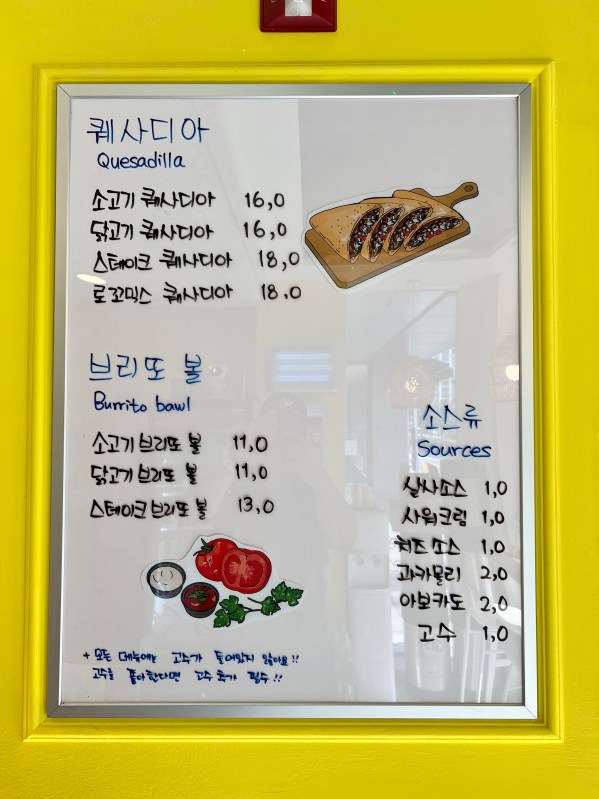 퀘사디아
Quesadilla
소고기 퀘사디아 16,0
닭고기 퀘사디아 16,0
스테이크 퀘사디아 18,0
로꼬믹스 퀘사디아 18.0
브리또 볼
Burrito bawl
소고기 브리또 볼 11,0
닭고기 브리또 볼 11,0
스테이크 브리또 볼 13,0
소스류
Sources
살사소스 1,0
사워크림 1,0
치즈 소스 1,0
과카몰리 2,0
아보카도 2,0
고수 1,0
+ 모든 메뉴에는 고수가 들어있지 않아요!!
고수를 좋아한다면 고수 추가 필수!!